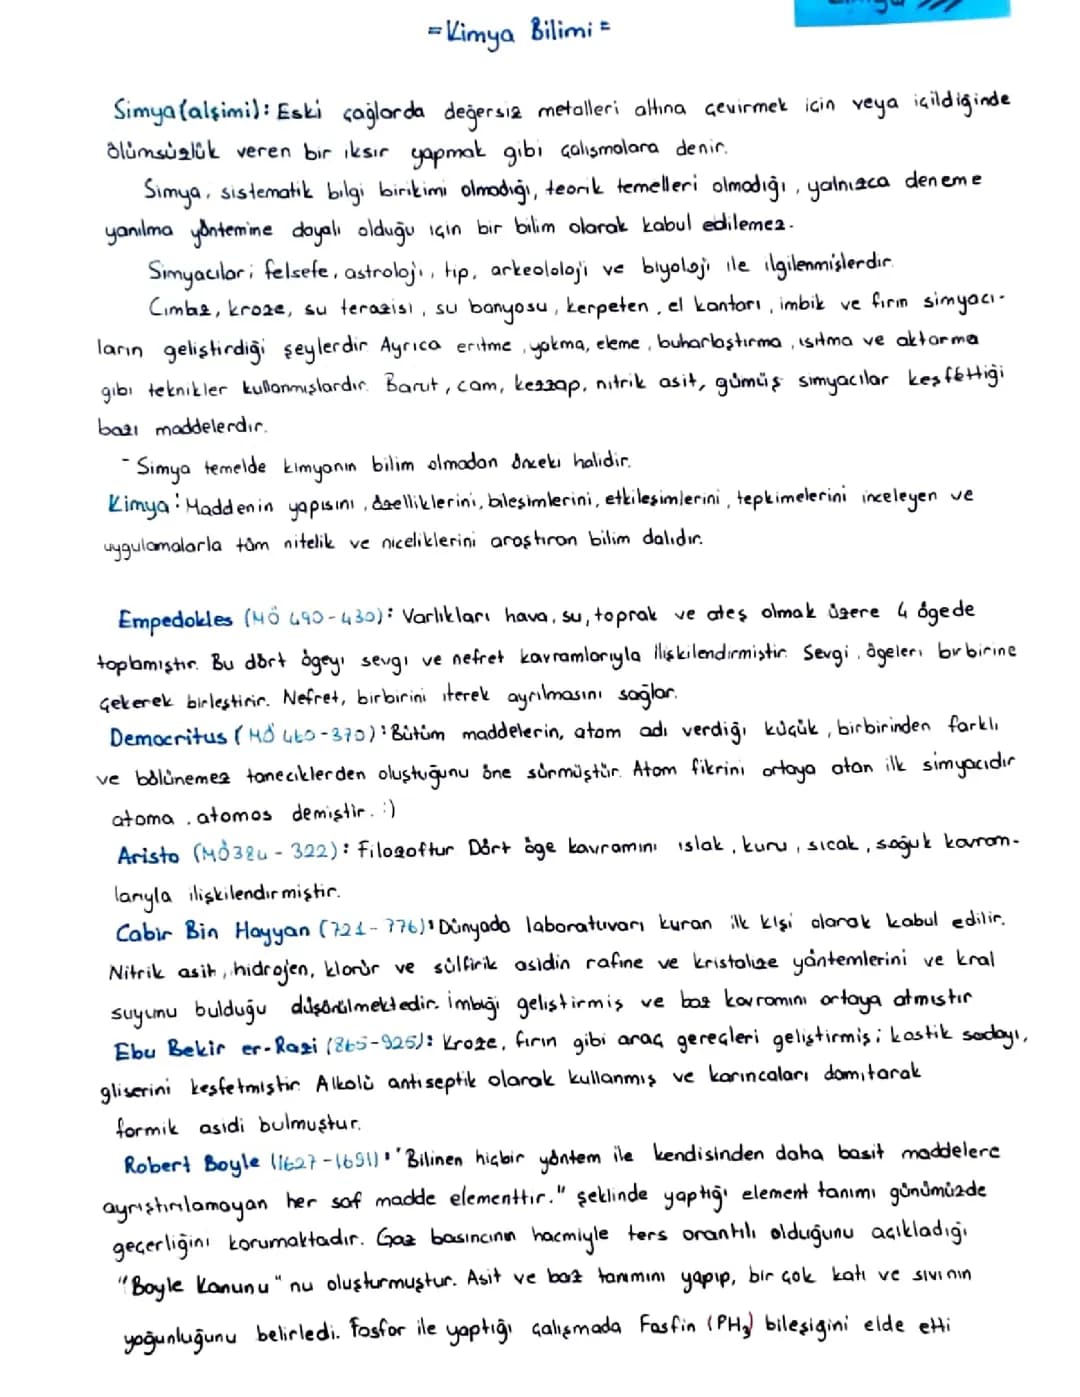 = Kimya Bilimi =
Simya (alşimi): Eski çağlarda değersiz metalleri altına çevirmek için veya içildiğinde
ölümsüzlük veren bir iksir yapmak gibi çalışmalara denir.
Simya, sistematik bilgi birikimi olmadığı, teorik temelleri olmadığı, yalnızca deneme
yanılma yöntemine dayalı olduğu için bir bilim olarak kabul edilemez.
Simyacılar; felsefe, astroloji, tıp, arkeololoji ve biyoloji ile ilgilenmişlerdir.
Cımbız, kroze, su terazisi, su banyosu, kerpeten, el kantarı, imbik ve fırın simyacı-
ların geliştirdiği şeylerdir. Ayrıca eritme, yakma, eleme, buharlaştırma, ısıtma ve aktarma
gibi teknikler kullanmışlardır. Barut, cam, kezzap, nitrik asit, gümüş simyacılar keşfettiği
bazı maddelerdir.
- Simya temelde kimyanın bilim olmadan önceki halidir.
Kimya: Maddenin yapısını, özelliklerini, bileşimlerini, etkileşimlerini, tepkimelerini inceleyen ve
uygulamalarla tüm nitelik ve niceliklerini araştıran bilim dalıdır.
Empedokles (MÖ 490-430): Varlıkları hava, su, toprak ve ateş olmak üzere 4 ögede
toplamıştır. Bu dört ögeyi sevgi ve nefret kavramlarıyla ilişkilendirmiştir. Sevgi, ögeleri birbirine
çekerek birleştirir. Nefret, birbirini iterek ayrılmasını sağlar.
Democritus (MÖ 460-370): Bütüm maddelerin, atom adı verdiği küçük, birbirinden farklı
ve bölünemez taneciklerden oluştuğunu öne sürmüştür. Atom fikrini ortaya atan ilk simyacıdır
atoma, atomos demiştir. :)
Aristo (MÖ384 - 322): Filozoftur Dört öge kavramını ıslak, kuru, sıcak, soğuk kavram-
larıyla ilişkilendirmiştir.
Cabir Bin Hayyan (721-776): Dünyada laboratuvarı kuran ilk kişi olarak kabul edilir.
Nitrik asit, hidrojen, klorür ve sülfirik asidin rafine ve kristalize yöntemlerini ve kral
suyunu bulduğu düşünülmektedir. İmbiği geliştirmiş ve baz kavramını ortaya atmıştır
Ebu Bekir er-Razi (865-925): Kroze, fırın gibi araç gereçleri geliştirmiş; kostik sodayı,
gliserini keşfetmiştir. Alkolü antiseptik olarak kullanmış ve karıncaları damıtarak
formik asidi bulmuştur.
Robert Boyle (1627-1691): "Bilinen hiçbir yöntem ile kendisinden daha basit maddelere
ayrıştırılamayan her saf madde elementtir." şeklinde yaptığı element tanımı günümüzde
geçerliğini korumaktadır. Gaz basıncının hacmiyle ters orantılı olduğunu açıkladığı
"Boyle Kanunu" nu oluşturmuştur. Asit ve baz tanımını yapıp, bir çok katı ve sıvının
yoğunluğunu belirledi. Fosfor ile yaptığı çalışmada Fosfin (PH3) bileşigini elde etti